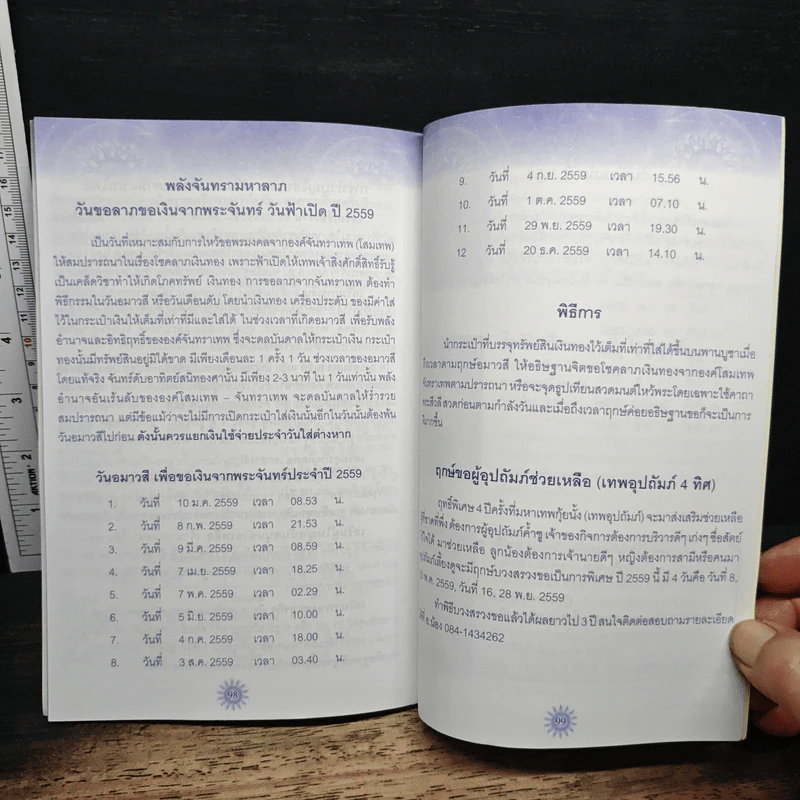 พลังจันทรามหาลาภ
วันขอลาภขอเงินจากพระจันทร์ วันฟ้าเปิด ปี 2559
เป็นวันที่เหมาะสมกับการไหว้ขอพรมงคลจากองค์จันทราเทพ (โสมเทพ)
ให้สมปรารถนาในเรื่องโชคลาภเงินทอง เพราะฟ้าเปิดให้เทพเจ้าสิ่งศักดิ์สิทธิ์รับรู้
เป็นเคล็ดวิชาทำให้เกิดโภคทรัพย์ เงินทอง การขอลาภจากจันทราเทพ ต้องทำ
พิธีกรรมในวันอมาวสี หรือวันเดือนดับ โดยนำเงินทอง เครื่องประดับ ของมีค่าใส่
ไว้ในกระเป๋าเงินให้เต็มที่เท่าที่มีและใส่ได้ ในช่วงเวลาที่เกิดอมาวสี เพื่อรับพลัง
อำนาจและอิทธิฤทธิ์ขององค์จันทราเทพ ซึ่งจะดลบันดาลให้กระเป๋าเงิน กระเป๋า
ทองนั้นมีทรัพย์สินอยู่มิได้ขาด มีเพียงเดือนละ 1 ครั้ง 1 วัน ช่วงเวลาของอมาวสี
โดยแท้จริง จันทร์ดับอาทิตย์สนิทองศานั้น มีเพียง 2-3 นาที ใน 1 วันเท่านั้น พลัง
อำนาจอันเร้นลับขององค์โสมเทพ – จันทราเทพ จะดลบันดาลให้ร่ำรวย
สมปรารถนา แต่มีข้อแม้ว่าจะไม่มีการเปิดกระเป๋าใส่เงินนั้นอีกในวันนั้นต้องพ้น
วันอมาวสีไปก่อน ดังนั้นควรแยกเงินใช้จ่ายประจำวันใส่ต่างหาก
วันอมาวสี เพื่อขอเงินจากพระจันทร์ประจำปี 2559
1. วันที่ 10 ม.ค. 2559 เวลา 08.53 น.
2. วันที่ 8 ก.พ. 2559 เวลา 21.53 น.
3. วันที่ 9 มี.ค. 2559 เวลา 08.59 น.
4. วันที่ 7 เม.ย. 2559 เวลา 18.25 น.
5. วันที่ 7 พ.ค. 2559 เวลา 02.29 น.
6. วันที่ 5 มิ.ย. 2559 เวลา 10.00 น.
7. วันที่ 4 ก.ค. 2559 เวลา 18.00 น.
8. วันที่ 3 ส.ค. 2559 เวลา 03.40 น.
98
9. วันที่ 4 ก.ย. 2559 เวลา 15.56 น.
10. วันที่ 1 ต.ค. 2559 เวลา 07.10 น.
11. วันที่ 29 พ.ย. 2559 เวลา 19.30 น.
12 วันที่ 20 ธ.ค. 2559 เวลา 14.10 น.
พิธีการ
นำกระเป๋าที่บรรจุทรัพย์สินเงินทองไว้เต็มที่เท่าที่ใส่ได้ขึ้นบนพานบูชาเมื่อ
ถึงเวลาตามฤกษ์อมาวสี ให้อธิษฐานจิตขอโชคลาภเงินทองจากองค์โสมเทพ
จันทราเทพตามปรารถนา หรือจะจุดธูปเทียนสวดมนต์ไหว้พระโดยเฉพาะใช้คาถา
พระสีวลี สวดก่อนตามกำลังวันและเมื่อถึงเวลาฤกษ์ค่อยอธิษฐานขอก็จะเป็นการ
ดีมากขึ้น
ฤกษ์ขอผู้อุปถัมภ์ช่วยเหลือ (เทพอุปถัมภ์ 4 ทิศ)
ฤทธิ์พิเศษ 4 ปีครั้งที่มหาเทพกุ้ยนั้ง (เทพอุปถัมภ์) จะมาส่งเสริมช่วยเหลือ
ผู้ที่ขาดที่พึ่ง ต้องการผู้อุปถัมภ์ค้ำชู เจ้าของกิจการต้องการบริวารดีๆ เก่งๆ ซื่อสัตย์
มาช่วยเหลือ ลูกน้องต้องการเจ้านายดีๆ หญิงต้องการสามีหรือคนมา
อุปถัมภ์เลี้ยงดูจะมีฤกษ์บวงสรวงขอเป็นการพิเศษ ปี 2559 นี้ มี 4 วันคือ วันที่ 8,
พ.ค. 2559, วันที่ 16, 28 พ.ย. 2559
ทำพิธีบวงสรวงขอแล้วได้ผลยาวไป 3 ปี สนใจติดต่อสอบถามรายละเอียด
น้อง 084-1434262
99